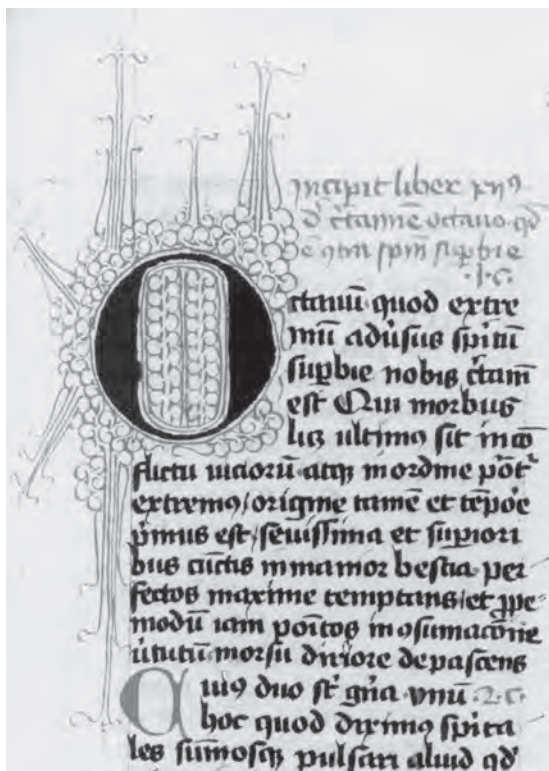 Incipit liber xii⁹
d' c̄tamīe octavo qd̄
e ɔtra sp̄m suꝑbie
.1.c.
Octauū quod extre
mū adūsus sp̄itū
suꝑbie nobis c̄tam̄
est Qui morbus
licꝫ ultimꝰ sit in cō
flictu uiciorū atqꝫ in ordine pōit̄
extremꝰ/origine tamē et tēpore
p̄mus est/seuissima et suꝑiori
bus cūctis inmanior bestia per
fectos maxime temptans/et ꝓpe
modū iam poſitos in ꝯsumacōne
ūtutum morsu diriore depascens
Cuiꝰ duo st̄ gn̄a vnū .2.c.
hoc quod diximꝰ spirita
les sum̄osqꝫ pulsari aliud qd̄